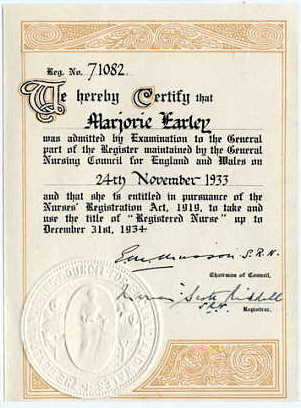 Reg. No. 71082.
We hereby Certify that
Marjorie Earley
was admitted by Examination to the General
part of the Register maintained by the General
Nursing Council for England and Wales on
24th November 1933
and that she is entitled in pursuance of the
Nurses' Registration Act, 1919, to take and
use the title of "Registered Nurse" up to
December 31st, 1934
S.R.N.
Chairman of Council.
Registrar.